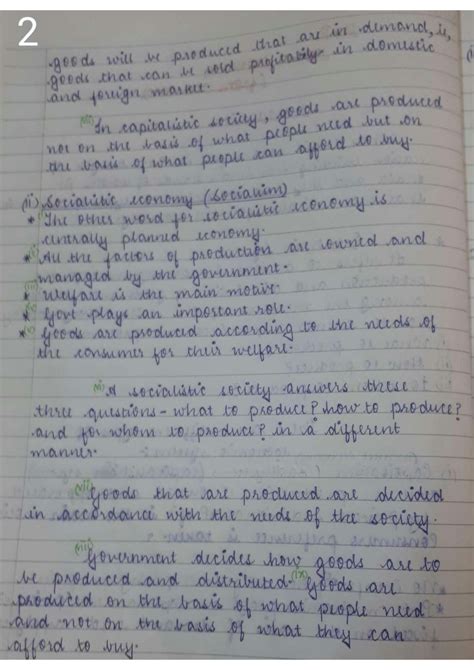 2
goods will be produced that are in demand, ie,
goods that can be sold profitably in domestic
and foreign market.
In capitalistic society, goods are produced
not on the basis of what people need but on
the basis of what people can afford to buy.
(ii) Socialistic economy (Socialism)
* The other word for socialistic economy is
centrally planned economy.
* All the factors of production are owned and
managed by the government.
* Welfare is the main motive.
* Govt plays an important role.
* Goods are produced according to the needs of
the consumer for their welfare.
(vi) A socialistic society answers these
three questions - what to produce? how to produce?
and for whom to produce? in a different
manner.
(vii) Goods that are produced are decided
in accordance with the needs of the society.
(viii) Government decides how goods are to
be produced and distributed. (ix) Goods are
produced on the basis of what people need
and not on the basis of what they can
afford to buy.